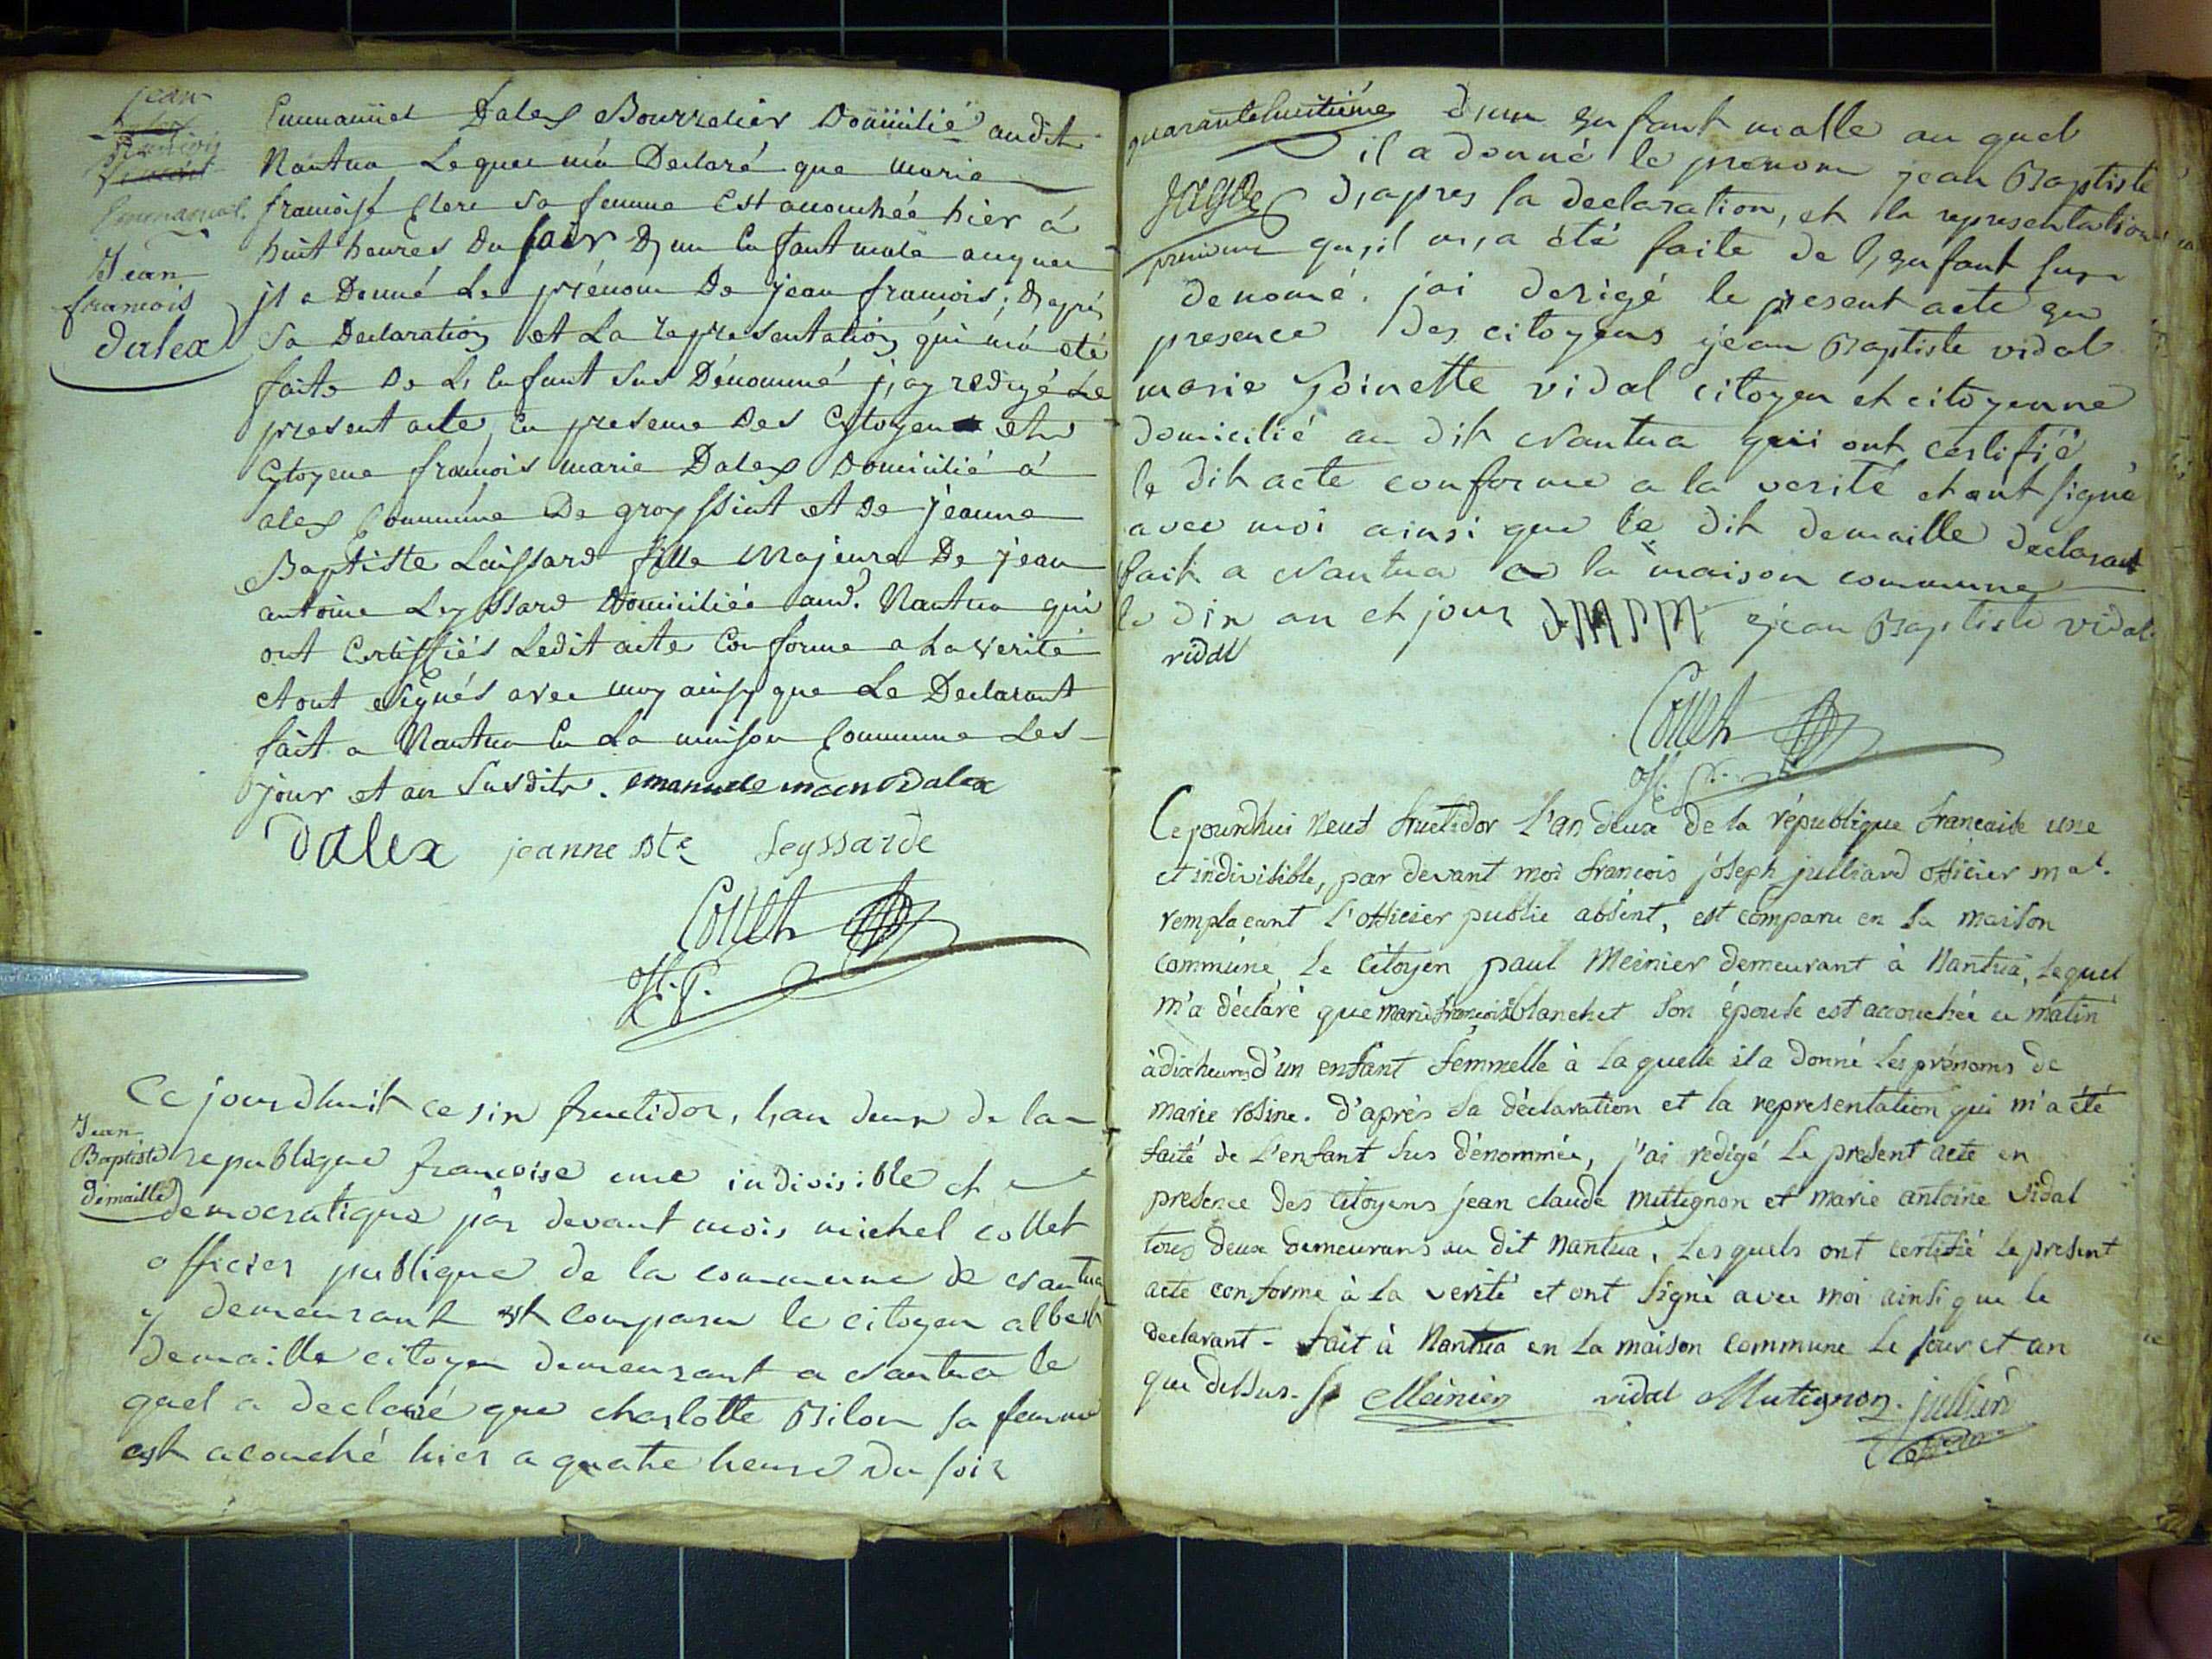 jean
francois
Emmanuel
Jean
francois
dalex
Emmanüel Dalex Bourrelier Domicilié audit
Nantua Lequel m'a Declaré que marie
francoise Clerc sa femme Est acouchée hier á
huit heures Du soir D'un Enfant male auquel
il a Donné Le prénom De jean francois; D'aprés
sa Declaration et La représentation qui m'a eté
faite De L'Enfant sus Dénommé j'ay redigé Le
présent acte, En presence Des Citoyen et
Citoyene francois marie Dalex Domicilié á
alex Commune De groyssiat et De jeanne
Baptiste Laissard fille Majeure De jean
antoine Leyssard Domiciliée aud. Nantua qui
ont Certiffiés Ledit acte Conforme a La Verité
et ont signés avec moy ainsy que Le Declarant
fait a Nantua En La maison Commune Les
jour et an Susdits. emanuele Dalex
Dalex jeanne Bte Leyssarde
Collet
Off. P.
Jean
Baptiste
demaille
Ce jourdhuit ce six fructidor, l'an deux de la
republique francoise une indivisible et
democratique par devant mois michel collet
officier publique de la commune de Nantua
y demeurant est comparu le citoyen albert
demaille citoyen demeurant a Nantua le
quel a declaré que charlotte Bilon sa femme
est acouché hier a quatre heure du soir
quarantehuitième
d'un enfant malle au quel
il a donné le prenom jean Baptiste
d'apres sa declaration, et la representation
qu'il m'a été faite de l'enfant sus
denomé. jai derigé le present acte en
presence des citoyens jean Baptiste vidal
marie Toinette vidal citoyen et citoyenne
domicilié au dit Nantua qui ont certifié
le dit acte conforme a la verité et ont signé
avec moi ainsi que le dit demaille declarant
fait a Nantua a la maison commune
le dix an et jour jean Baptiste vidal
vidal
Collet
Off. P.
Cejourdhui neuf fructidor L'an deux de la république francaise une
et indivisible, par devant moi francois joseph julliard officier mal.
remplacant L'officier public absent, est comparu en La maison
commune, Le citoyen paul Meinier demeurant à Nantua, Lequel
m'a déclaré que marie francoise blanchet Son épouse est accouchée ce matin
à dix heures d'un enfant femmelle à laquelle il a donné Les prénoms de
marie rosine. d'après sa déclaration et la representation qui m'a été
faite de L'enfant sus dénommée, j'ai redigé Le present acte en
presence des citoyens jean claude mutignon et marie antoine vidal
tous deux demeurans au dit Nantua, Lesquels ont certifié Le present
acte conforme à La verité et ont Signé avec moi ainsi que le
declarant - fait à Nantua en La maison commune Le jour et an
que dessus. Meinier vidal Mutignon. julliard